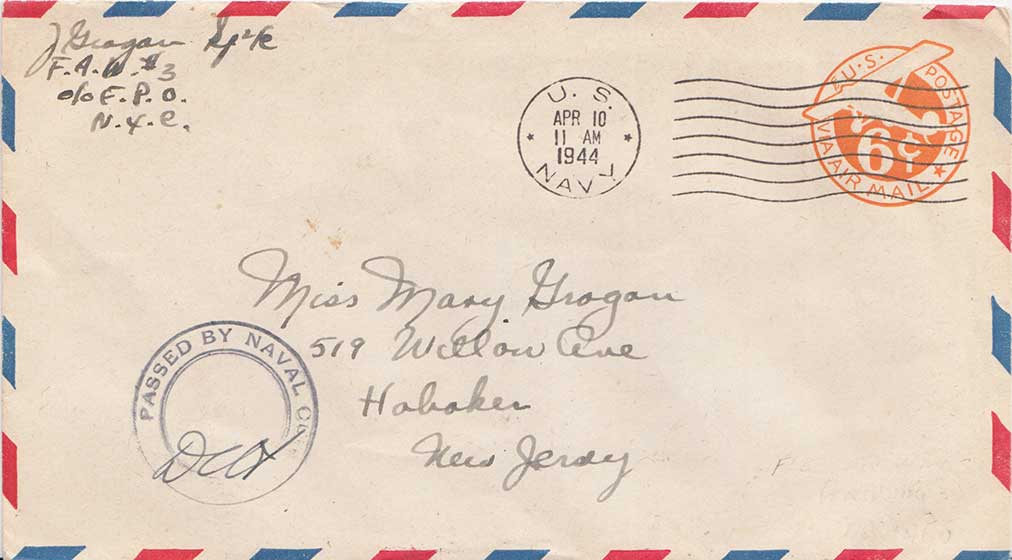 J Grogan
F.A.W. #3
c/o F.P.O.
N.Y.C.
U.S.
APR 10
11 AM
1944
NAVY
U.S. POSTAGE
6¢
VIA AIR MAIL
Miss Mary Grogan
519 Willow Ave
Hoboken
New Jersey
PASSED BY NAVAL